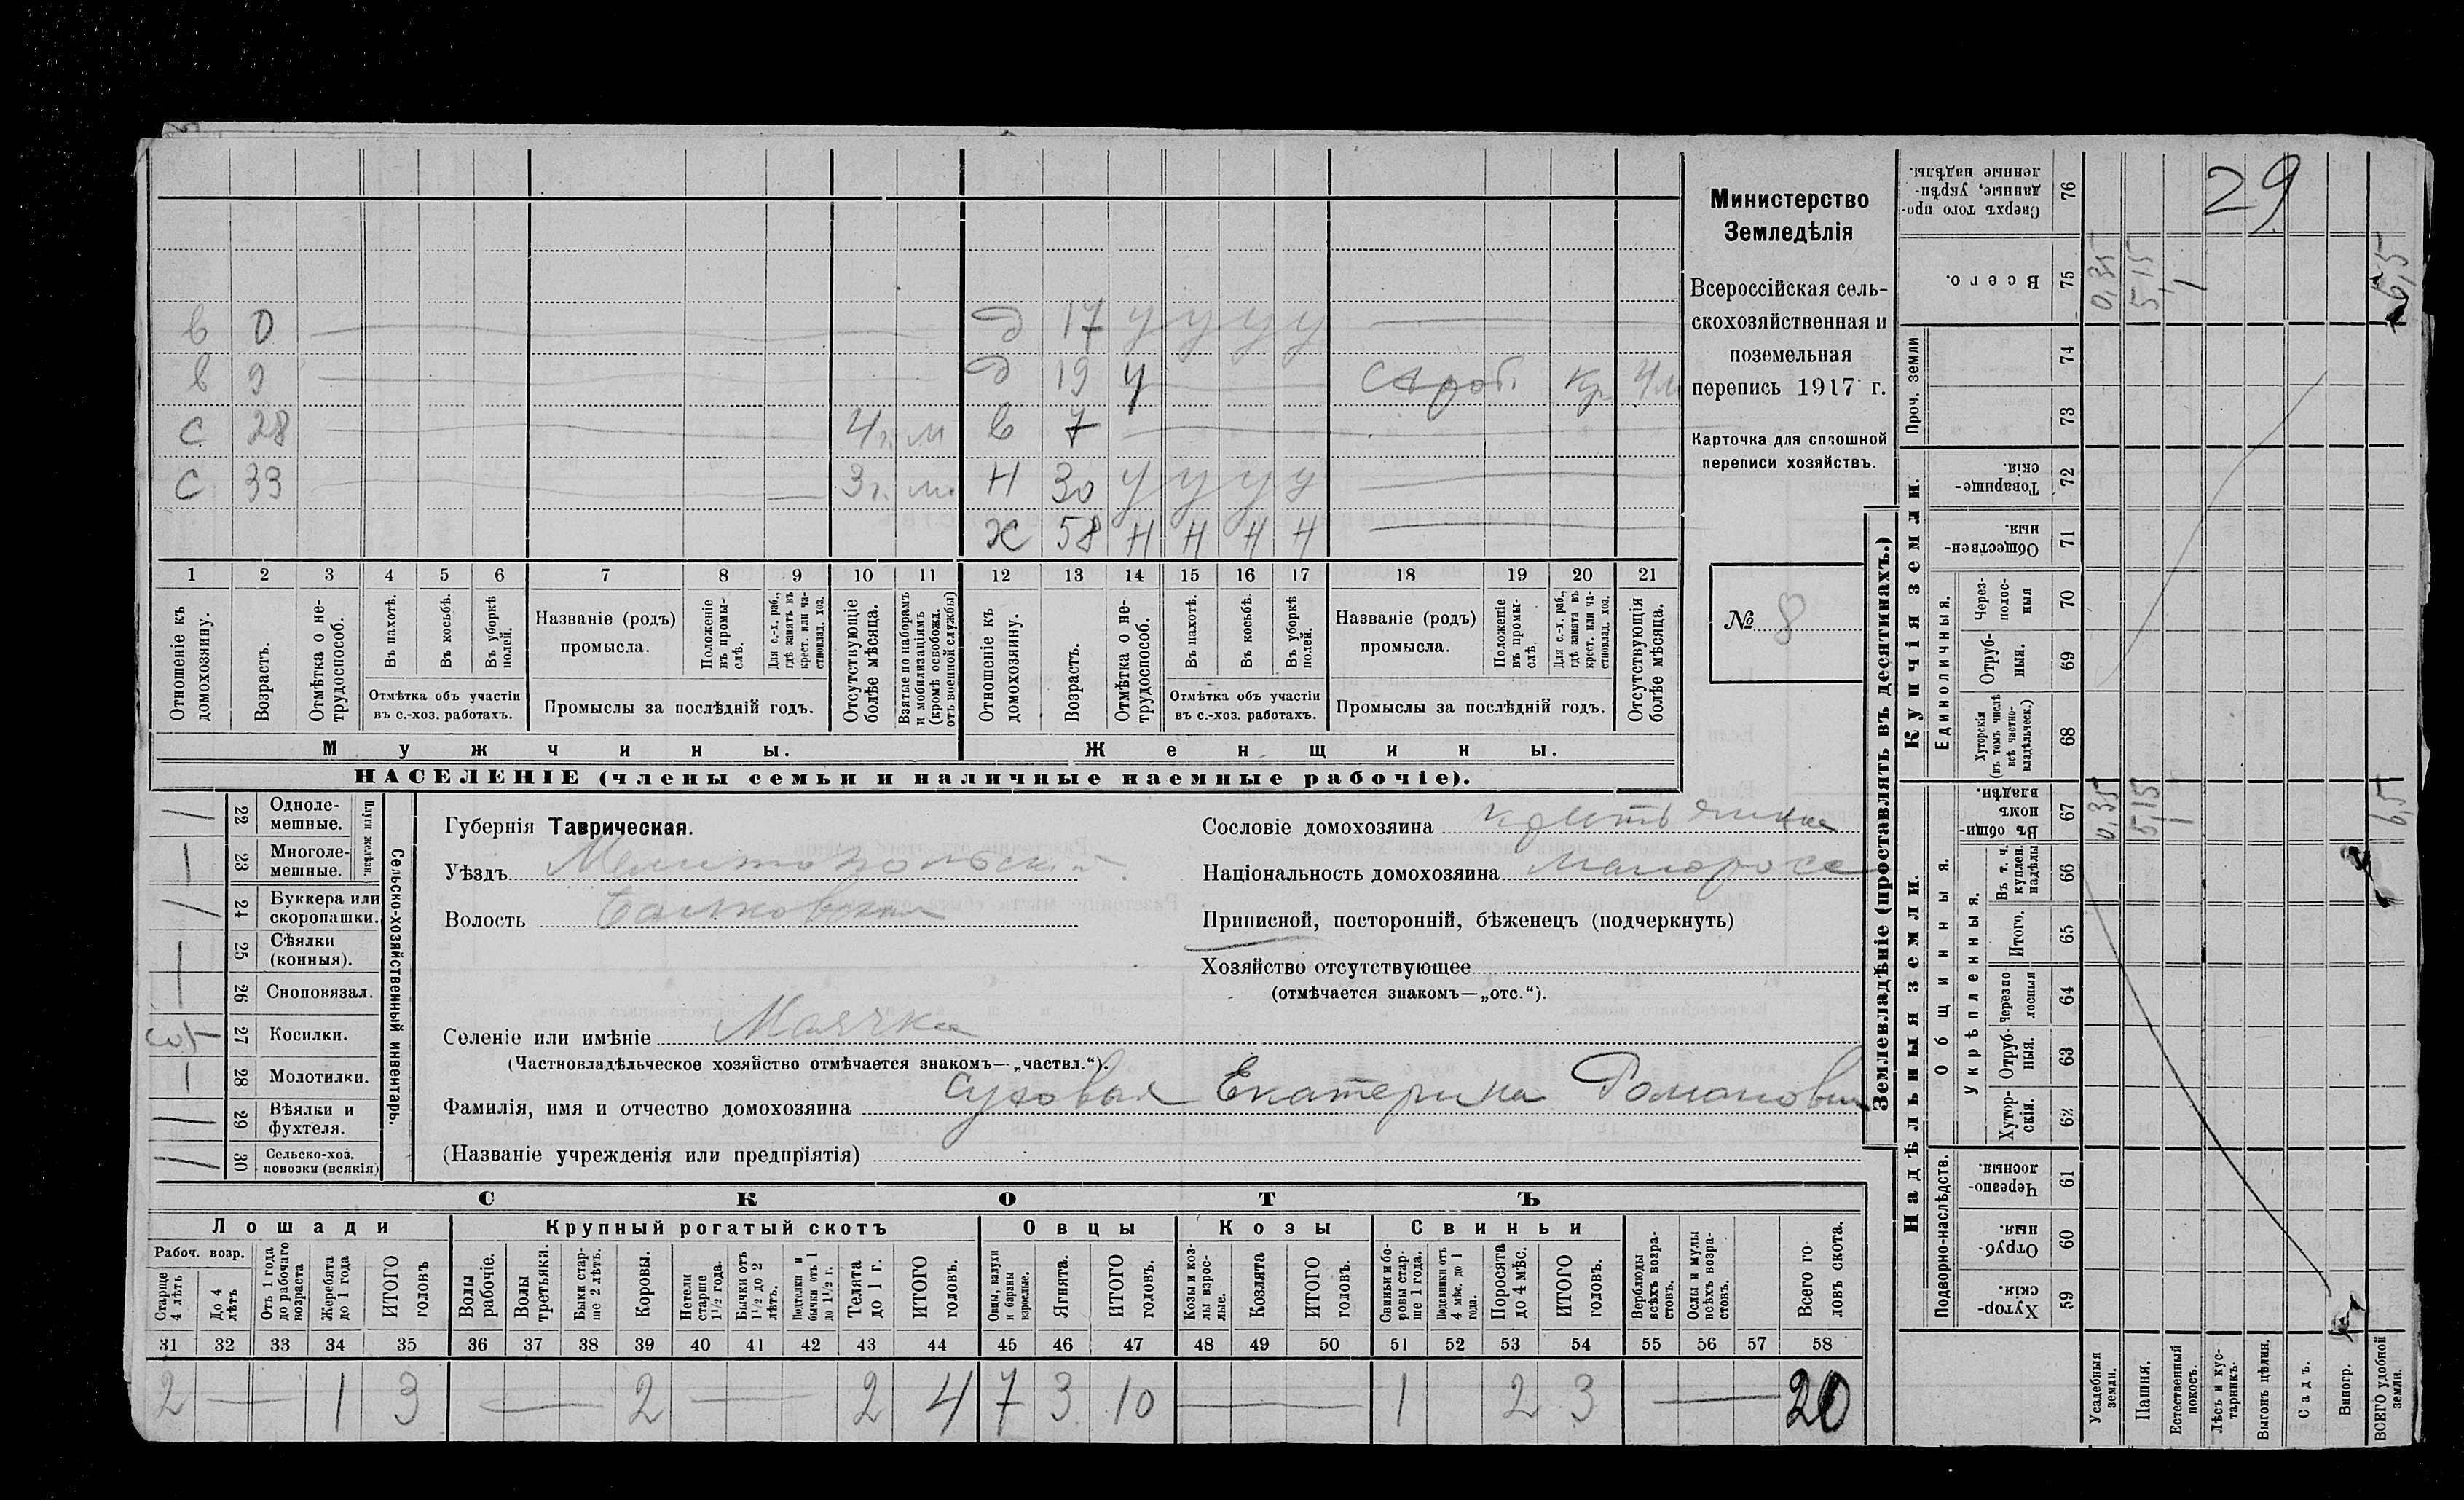 29
Министерство
Земледѣлія
Всероссійская сель-
скохозяйственная и
поземельная
перепись 1917 г.
Карточка для сплошной
переписи хозяйствъ.
№ 8
в 0 д 17 у у у у
в 9 д 19 у Кр. 4 м
с 28 4 г. м в 7
с 33 3 г. м. н 30 у у у у
х 58 н н н н
1 2 3 4 5 6 7 8 9 10 11 12 13 14 15 16 17 18 19 20 21
Отношеніе къ домохозяину.
Возрастъ.
Отмѣтка о не-трудоспособ.
Въ пахотѣ.
Въ косьбѣ.
Въ уборкѣ полей.
Отмѣтка объ участіи
въ с.-хоз. работахъ.
Названіе (родъ)
промысла.
Положеніе въ промы-слѣ.
Для с.-х. раб., гдѣ занятъ въ крест. или ча-стновлад. хоз.
Промыслы за послѣдній годъ.
Отсутствующіе болѣе мѣсяца.
Взятые по наборамъ и мобилизаціямъ (кромѣ освобожд. отъ военной службы)
Отношеніе къ домохозяину.
Возрастъ.
Отмѣтка о не-трудоспособ.
Въ пахотѣ.
Въ косьбѣ.
Въ уборкѣ полей.
Отмѣтка объ участіи
въ с.-хоз. работахъ.
Названіе (родъ)
промысла.
Положеніе въ промы-слѣ.
Для с.-х. раб., гдѣ занята въ крест. или ча-стновлад. хоз.
Промыслы за послѣдній годъ.
Отсутствующія болѣе мѣсяца.
Мужчины.
Женщины.
НАСЕЛЕНІЕ (члены семьи и наличные наемные рабочіе).
Сельско-хозяйственный инвентарь.
Плуги желѣзн.
22 Одноле-мешные.
23 Многоле-мешные.
24 Буккера или скоропашки.
25 Сѣялки (конныя).
26 Сноповязал.
27 Косилки.
28 Молотилки. 1
29 Вѣялки и фухтеля.
30 Сельско-хоз. повозки (всякія)
Губернія Таврическая.
Уѣздъ Мелитопольскій
Волость
Селеніе или имѣніе Маячка
(Частновладѣльческое хозяйство отмѣчается знакомъ—„частвл.“).
Фамилія, имя и отчество домохозяина Сухова Екатерина Романовна
(Названіе учрежденія или предпріятія)
Сословіе домохозяина крестьянка
Національность домохозяина малоросс
Приписной, посторонній, бѣженецъ (подчеркнуть)
Хозяйство отсутствующее
(отмѣчается знакомъ—„отс.“).
СКОТЪ
Лошади
Крупный рогатый скотъ
Овцы
Козы
Свиньи
Рабоч. возр.
Старше 4 лѣтъ
До 4 лѣтъ
Отъ 1 года до рабочаго возраста
Жеребята до 1 года
ИТОГО головъ
Волы рабочіе.
Волы третьяки.
Быки стар-ше 2 лѣтъ.
Коровы.
Нетели старше 1½ года.
Бычки отъ 1½ до 2 лѣтъ.
Подтелки и бычки отъ 1 до 1½ г.
Телята до 1 г.
ИТОГО головъ.
Овцы, валухи и бараны взрослые.
Ягнята.
ИТОГО головъ.
Козы и коз-лы взрос-лые.
Козлята
ИТОГО головъ.
Свиньи и бо-ровы стар-ше 1 года.
Подсвинки отъ 4 мѣс. до 1 года.
Поросята до 4 мѣс.
ИТОГО головъ.
Верблюды всѣхъ возра-стовъ.
Ослы и мулы всѣхъ возра-стовъ.
Всего го ловъ скота.
31 32 33 34 35 36 37 38 39 40 41 42 43 44 45 46 47 48 49 50 51 52 53 54 55 56 57 58
2 — 1 3 — 2 — 2 4 7 3 10 — 1 2 3 — 20
Землевладѣніе (проставлять въ десятинахъ.)
Купчія земли.
Надѣльныя земли.
Сверхъ того про-данные, укрѣп-ленные надѣлы. 76
Всего. 75 0,35 5,15 1 6,5
Проч. земли 74 73
Товарище-скія. 72
Обществен-ныя. 71
Единоличныя.
Через-полос-ныя 70
Отруб-ныя. 69
Хуторскія (въ томъ числѣ всѣ частно-владѣльческ.) 68
Общинныя.
Въ общин-номъ владѣн. 67 0,35 5,15 1 6,5
Укрѣпленныя.
Въ т. ч. куплен. надѣлы 66
Итого. 65
Через по лосныя 64
Отруб-ныя. 63
Хутор-скія. 62
Подворно-наслѣдств.
Черезпо-лосныя. 61
Отруб-ныя. 60
Хутор-скія. 59
Усадебныя земли.
Пашня.
Естественный покосъ.
Лѣсъ и кус-тарникъ.
Выгонъ цѣлин.
Садъ.
Виногр.
ВСЕГО удобной земли.